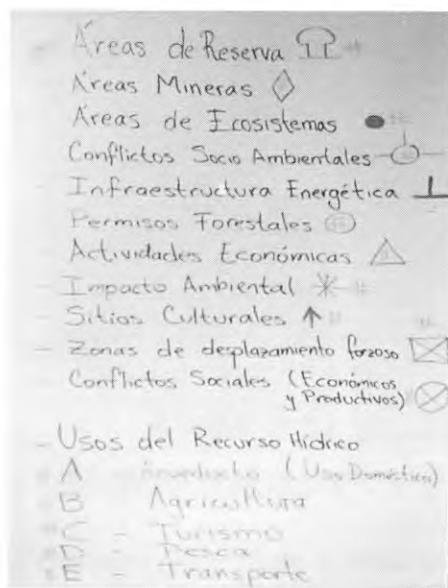 - Áreas de Reserva
Áreas Mineras
Áreas de Ecosistemas
Conflictos Socio Ambientales
- Infraestructura Energética
- Permisos Forestales
Actividades Económicas
- Impacto Ambiental
- Sitios Culturales
- Zonas de desplazamiento forzoso
Conflictos Sociales (Económicos
y Productivos)
- Usos del Recurso Hídrico
A - Acueducto (Uso Doméstico)
B Agricultura
C - Turismo
D - Pesca
E - Transporte